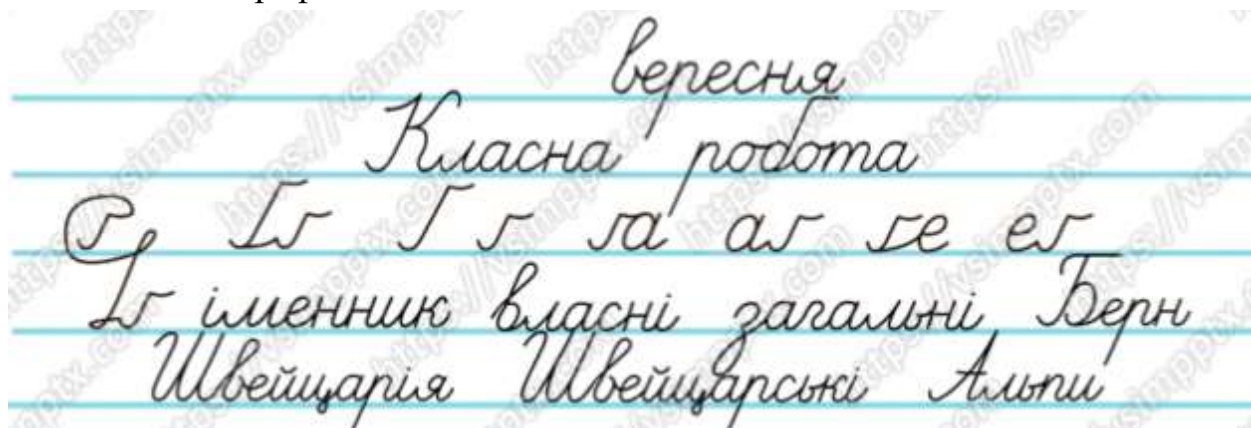 вересня
Класна робота
Ґґ Г г га аг ге ег
Ґґ іменник власні загальні Берн
Швейцарія Швейцарські Альпи